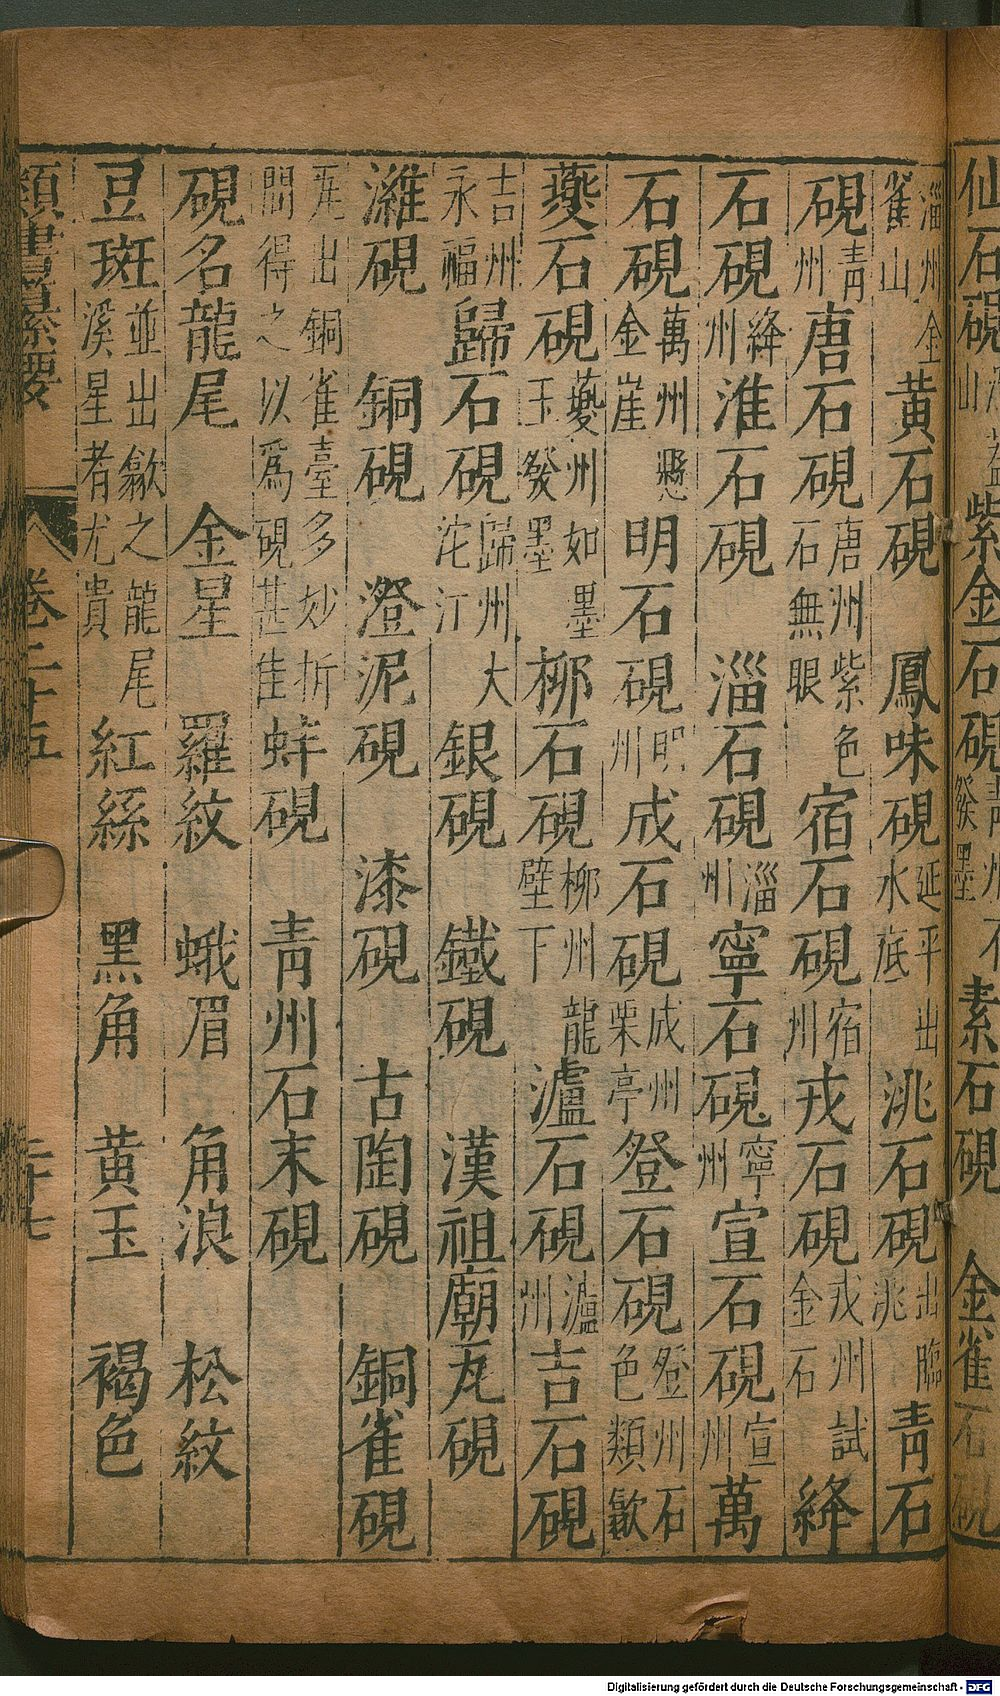 仙石硯 紫金石硯 素石硯 金雀石硯
淄州金雀山 黃石硯 鳳味硯延平出水底 洮石硯出臨洮 青石
硯青州 唐石硯唐州紫色石無眼 宿石硯宿州 戎石硯戎州試金石 絳
石硯絳州 淮石硯 淄石硯淄州 寧石硯寧州 宣石硯宣州 萬
石硯萬州懸金崖 明石硯明州 成石硯成州栗亭 登石硯登州石色類歙
夔石硯夔州如墨玉發墨 柳石硯柳州龍壁下 瀘石硯瀘州 吉石硯
吉州永福 歸石硯歸州大沱汀 銀硯 鐵硯 漢祖廟瓦硯
濰硯 銅硯 澄泥硯 漆硯 古陶硯 銅雀硯
瓦出銅雀臺多妙折間得之以爲硯甚佳 蚌硯 青州石末硯
硯名龍尾 金星 羅紋 蛾眉 角浪 松紋
豆斑並出歙之龍尾溪星者尤貴 紅絲 黑角 黃玉 褐色
類書纂要 卷二十五 二十七
Digitalisierung gefördert durch die Deutsche Forschungsgemeinschaft - DFG